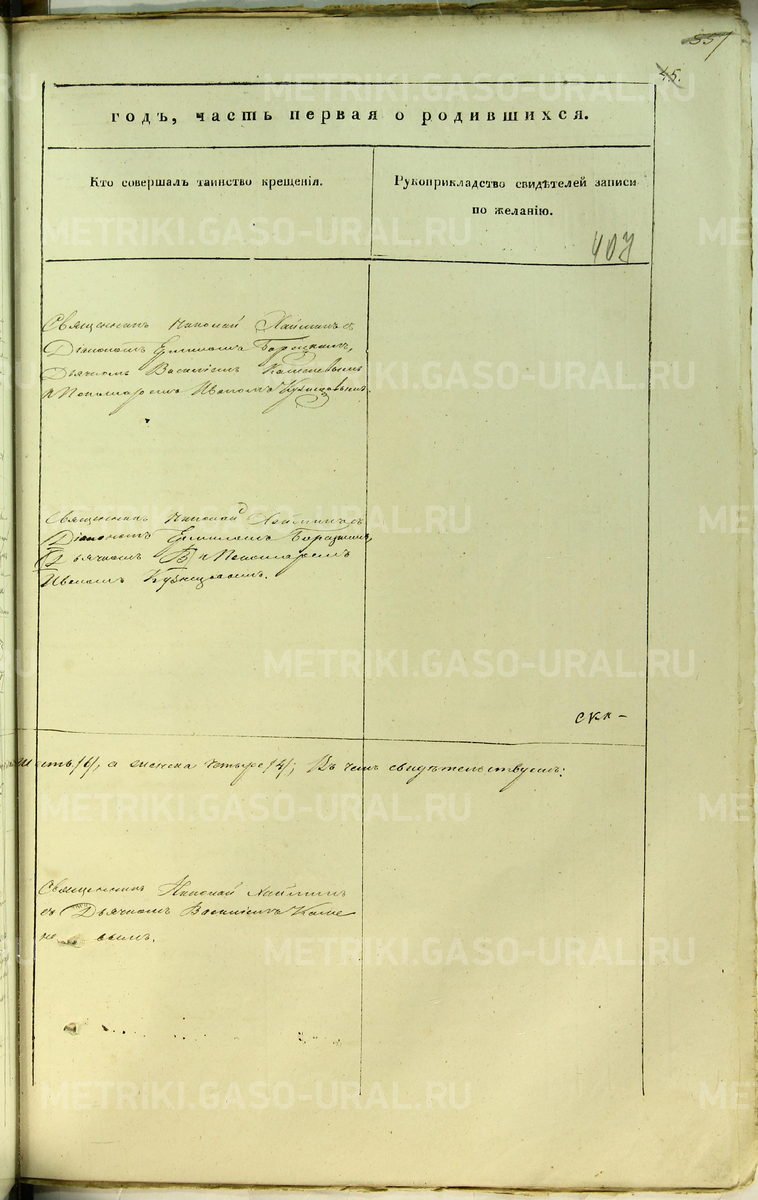 557
45.
годъ, часть первая о родившихся.
Кто совершалъ таинство крещенія.
Рукоприкладство свидѣтелей записи
по желанію.
407
Священникъ Николай Хайминъ съ
Діакономъ Ермилом Бароцкимъ,
Дьячкомъ Василіемъ Каменевымъ
и Пономаремъ Иваномъ Кузнецовымъ.
Священникъ Николай Хайминъ съ
Діакономъ Ермилом
Дьячкомъ В и Пономаремъ
Иваномъ Кузнецовымъ.
скк
шесть /6/, а женска четыре /4/; Въ чемъ свидѣтельствуемъ:
Священникъ Николай Хайминъ
съ Дьячкомъ Василіемъ Каме
не вымъ.
METRIKI.GASO-URAL.RU